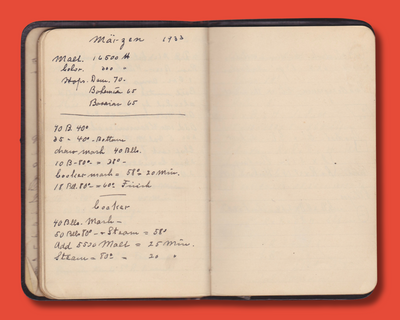 Märzen 1933
Malt. 16500 #
Color. 200 "
Hops. Dom. 70.
Bohemia 65
Bavarian 65
70 B 40°
25 - 40° - Bottom
draw mash 40 Blls.
10 B - 80° = 28° -
Cooker mash = 58° 20 Min.
18 Bll. 80° = 60° Finish
Cooker
40 Blls. Mash -
50 Blls 80° - + Steam = 58°
Add 5510 Malt = 25 Min.
Steam = 50° = 20 "